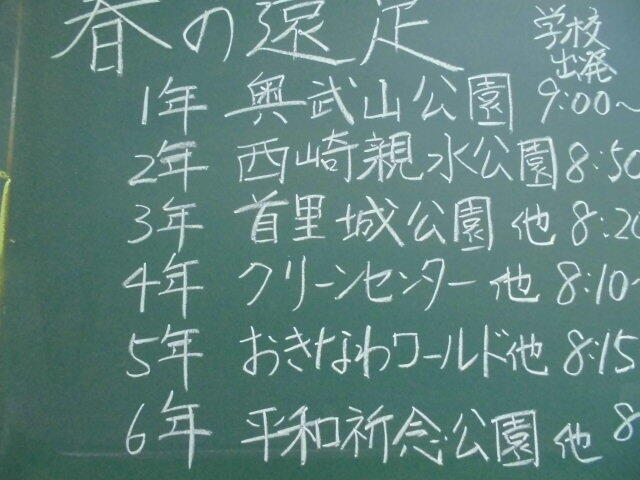 春の遠足
学校
出発
1年 奥武山公園 9:00~
2年 西崎親水公園 8:50
3年 首里城公園 他 8:20
4年 クリーンセンター 他 8:10~
5年 おきなわワールド他 8:15
6年 平和祈念公園 他 8